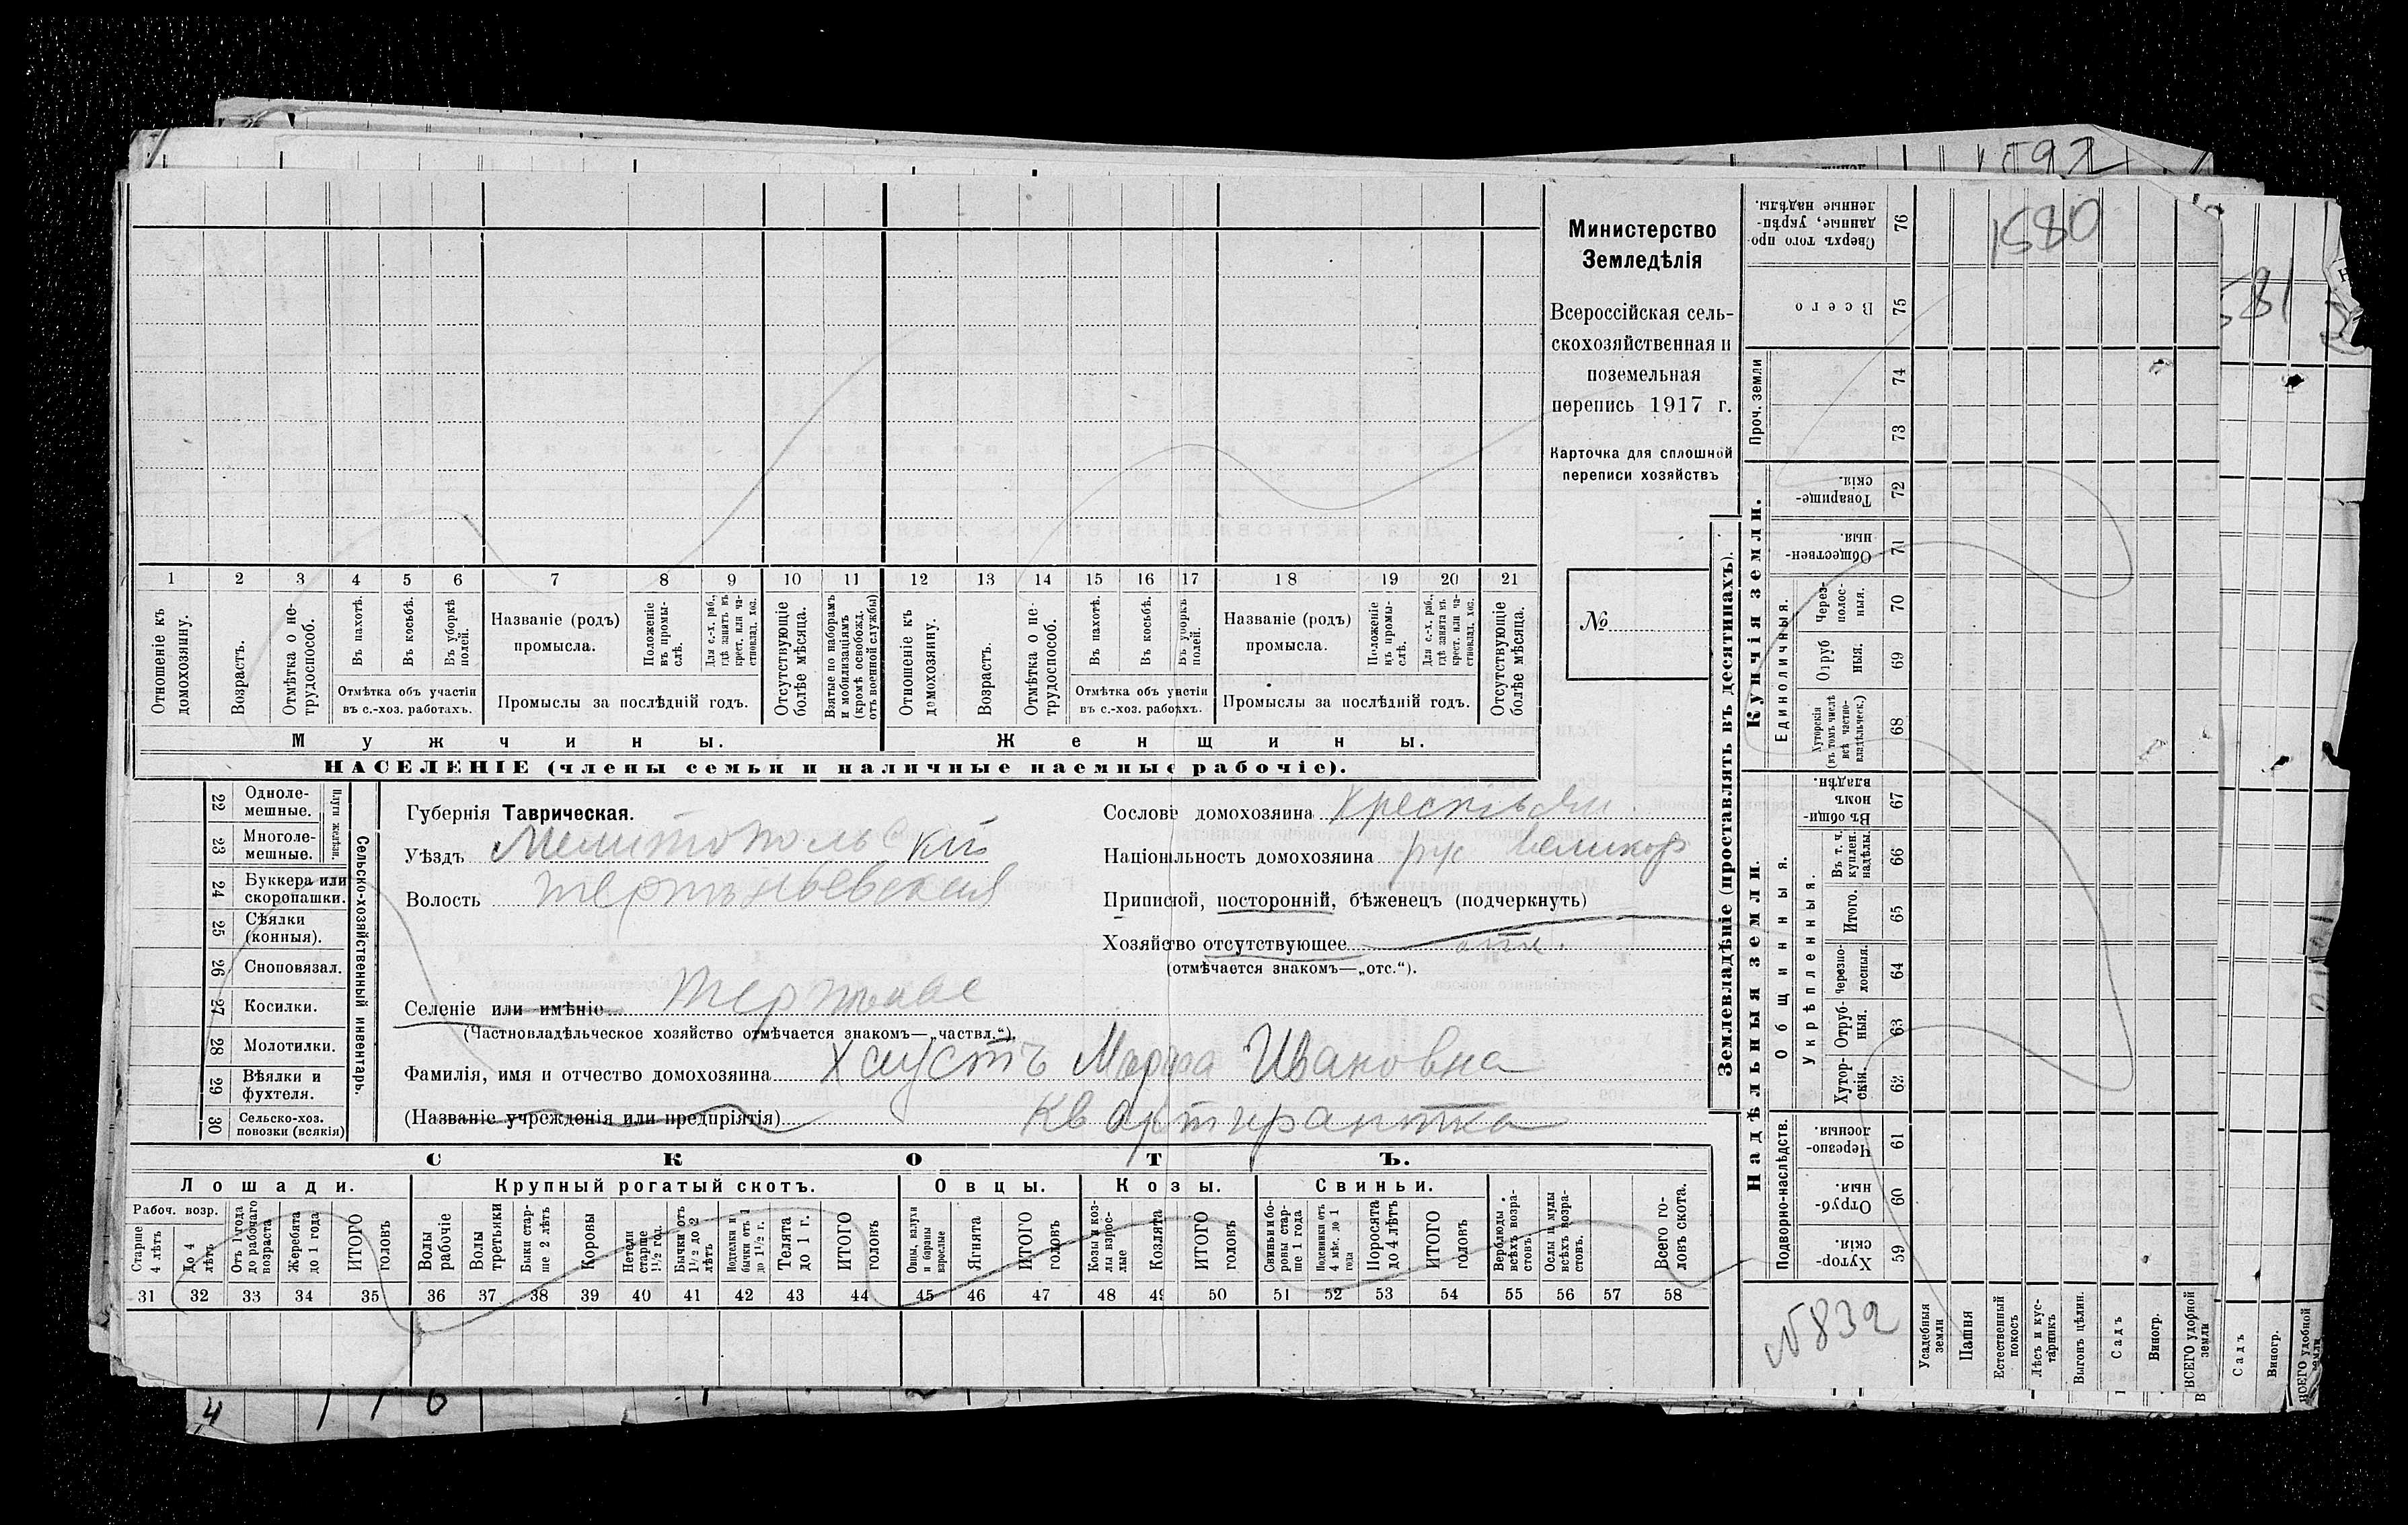 592
1580
581
Министерство
Земледѣлія
Всероссійская сель-
скохозяйственная и
поземельная
перепись 1917 г.
Карточка для сплошной
переписи хозяйствъ
№
1 2 3 4 5 6 7 8 9 10 11 12 13 14 15 16 17 18 19 20 21
Отношеніе къ домохозяину.
Возрастъ.
Отмѣтка о не-трудоспособ.
Въ пахотѣ.
Въ косьбѣ.
Въ уборкѣ полей.
Отмѣтка объ участіи
въ с.-хоз. работахъ.
Названіе (родъ)
промысла.
Положеніе въ промы-слѣ.
Для с.-х. раб., гдѣ занятъ въ крест. или ча-стновлад. хоз.
Промыслы за послѣдній годъ.
Отсутствующіе болѣе мѣсяца.
Взятые по наборамъ и мобилизаціямъ (кромѣ освобожд. отъ военной службы)
Отношеніе къ домохозяину.
Возрастъ.
Отмѣтка о не-трудоспособ.
Въ пахотѣ.
Въ косьбѣ.
Въ уборкѣ полей.
Отмѣтка объ участіи
въ с.-хоз. работахъ.
Названіе (родъ)
промысла.
Положеніе въ промы-слѣ.
Для с.-х. раб., гдѣ занята въ крест. или ча-стновлад. хоз.
Промыслы за послѣдній годъ.
Отсутствующіе болѣе мѣсяца.
Мужчины.
Женщины.
НАСЕЛЕНІЕ (члены семьи и наличные наемные рабочіе).
22 Одноле-мешные.
23 Многоле-мешные.
Плуги желѣзн.
24 Буккера или скоропашки.
25 Сѣялки (конныя).
26 Сноповязал.
27 Косилки.
28 Молотилки.
29 Вѣялки и фухтеля.
30 Сельско-хоз. повозки (всякія)
Сельско-хозяйственный инвентарь.
Губернія Таврическая.
Уѣздъ Мелитопольскій
Волость
Сословіе домохозяина крестьян.
Національность домохозяина рус великор
Приписной, посторонній, бѣженецъ (подчеркнуть)
Хозяйство отсутствующее
(отмѣчается знакомъ—„отс.“).
Селеніе или имѣніе
(Частновладѣльческое хозяйство отмѣчается знакомъ—„частвл.“)
Фамилія, имя и отчество домохозяина Хаустъ Марфа Ивановна
(Названіе учрежденія или предпріятія) Квартирантка
СКОТЪ.
Лошади.
Крупный рогатый скотъ.
Овцы.
Козы.
Свиньи.
Рабоч. возр.
Старше 4 лѣтъ
до 4 лѣтъ
Отъ 1 года до рабочаго возраста
Жеребята до 1 года
ИТОГО головъ
Волы рабочіе
Волы третьяки
Быки стар-ше 2 лѣтъ
Коровы
Нетели старше 1½ год.
Бычки отъ 1½ до 2 лѣтъ
Подтелки и бычки отъ 1 до 1½ г.
Телята до 1 г.
ИТОГО головъ
Овцы, валухи и бараны взрослые
Ягнята
ИТОГО головъ
Козы и коз-лы взрос-лые
Козлята
ИТОГО головъ
Свиньи и бо-ровы стар-ше 1 года
Подсвинки отъ 4 мѣс. до 1 года
Поросята до 4 лѣтъ
ИТОГО головъ
Верблюды всѣхъ возра-стовъ.
Ослы и мулы всѣхъ возра-стовъ.
Всего го-ловъ скота.
31 32 33 34 35 36 37 38 39 40 41 42 43 44 45 46 47 48 49 50 51 52 53 54 55 56 57 58
Землевладѣніе (проставлять въ десятинахъ).
Купчія земли.
Надѣльныя земли.
Сверхъ того про-данные, укрѣп-ленные надѣлы. 76
Всего 75
Проч. земли
74
73
Товарище-скія. 72
Обществен-ныя. 71
Единоличныя.
Через-полос-ныя. 70
Отруб ныя. 69
Хуторскія (въ томъ числѣ всѣ частно-владѣльческ.) 68
Общинныя.
Въ общи-номъ владѣн. 67
Въ т. ч. куплен. надѣлы. 66
Укрѣпленныя.
Итого. 65
Черезпо-лосныя. 64
Отруб-ныя. 63
Хутор-скія. 62
Подворно-наслѣдств.
Черезпо-лосныя. 61
Отруб-ныя. 60
Хутор-скія. 59
№832
Усадебныя земли
Пашня
Естественный покосъ
Лѣсъ и кус-тарникъ
Выгонъ цѣлин.
Садъ
Виногр.
ВСЕГО удобной земли
Садъ
Виногр.
ВСЕГО удобной земли
4 1 1 6